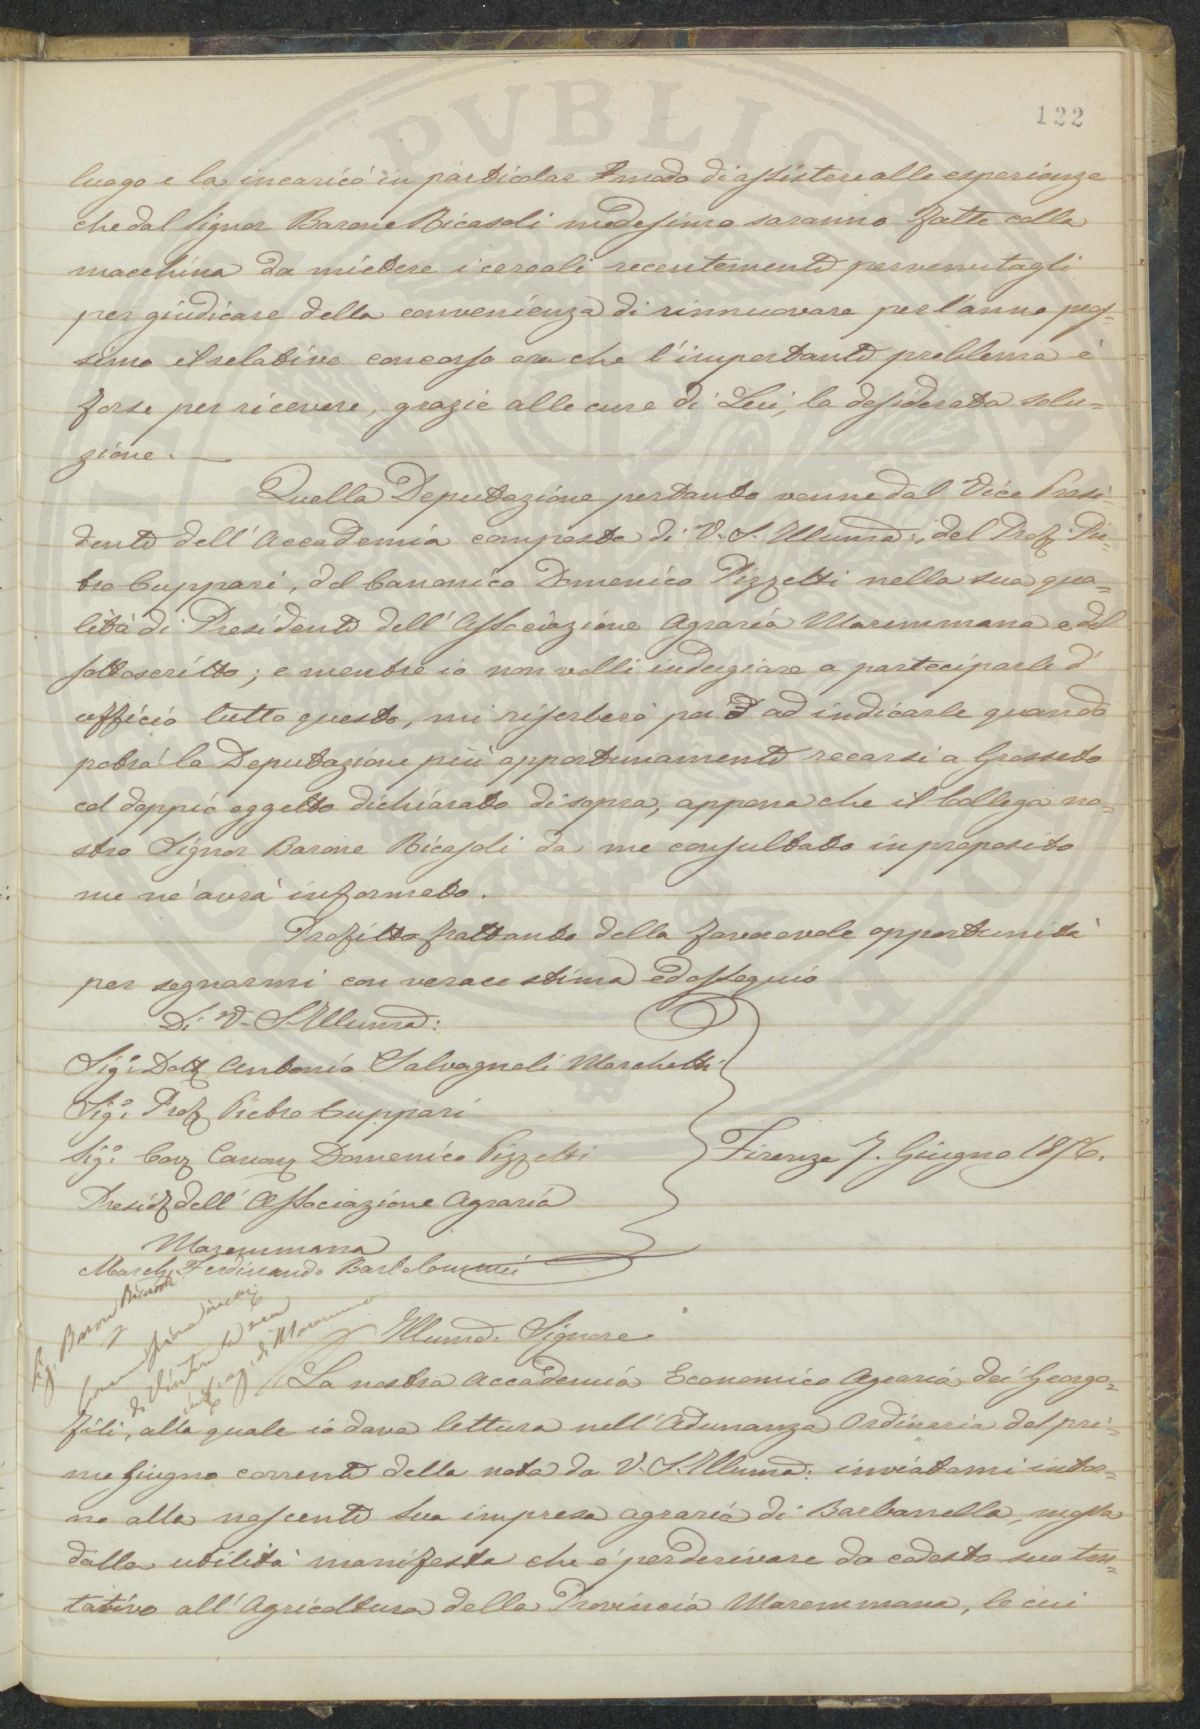 122
luogo e la incaricò in particolar modo di assistere alle esperienze
che dal Signor Barone Ricasoli medesimo saranno fatte colla
macchina da mietere i cereali recentemente pervenutagli
per giudicare della convenienza di rinnuovare per l'anno pros=
simo il relativo concorso ora che l'importante problema è
forse per ricevere, grazie alle cure di Lei, la desiderata solu=
zione. —
Quella Deputazione pertanto venne dal Vice Presi=
dente dell'Accademia composta di V. S. Illuma:, del Prof: Pie=
tro Cuppari, del Canonico Domenico Pizzetti nella sua qua=
lità di Presidente dell'Associazione Agraria Maremmana e del
sottoscritto; e mentre io non volli indugiare a parteciparle d'
ufficio tutto questo, mi riserberò poi ad indicarle quando
potrà la Deputazione più opportunamente recarsi a Grosseto
col doppio oggetto dichiarato di sopra, appena che il Collega no=
stro Signor Barone Ricasoli da me consultato in proposito
me ne avrà informato.
Profitto frattanto della favorevole opportunità
per segnarmi con verace stima ed ossequio
Di V. S. Illuma:
Sigr: Dott Antonio Salvagnoli Marchetti
Sigr: Prof Pietro Cuppari
Sigr: Cav Canon Domenico Pizzetti
Presid dell'Associazione Agraria
Maremmana
March. Ferdinando Bartolommei
Firenze 7. Giugno 1856.
Sig. Barone Ricasoli
Illuma: Signore
La nostra Accademia Economico Agraria dei Georgo=
fili, alla quale io dava lettura nell'Adunanza Ordinaria del pri=
mo Giugno corrente della nota da V. S. Illuma: inviatami intor=
no alla nascente sua impresa agraria di Barbanella, mossa
dalla utilità manifesta che è per derivare da codesto suo ten=
tativo all'Agricoltura della Provincia Maremmana, le cui